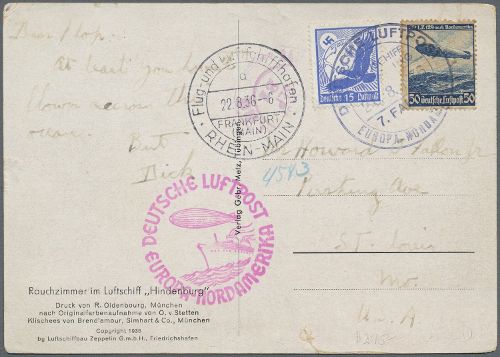 Dear Pop:
At least you have
flown across the
ocean.
But
Dick
Flug- und Luftschiffhafen
a
22.8.36.-6
FRANKFURT
(MAIN)
RHEIN-MAIN
Deutsche 15 Luftpost
DEUTSCHE LUFTPOST
7. FA
EUROPA-NORDA
50 Deutsche Luftpost 50
4543
Howard
Pershing Ave
St. Louis
Mo.
U.S.A
DEUTSCHE LUFTPOST
EUROPA-NORDAMERIKA
Verlag Gebr. Metz, Tübingen
Rauchzimmer im Luftschiff „Hindenburg"
Druck von R. Oldenbourg, München
nach Originalfarbenaufnahme von O. v. Stetten
Klischees von Brend'amour, Simhart & Co., München
Copyright 1936
by Luftschiffbau Zeppelin G.m.b.H., Friedrichshafen